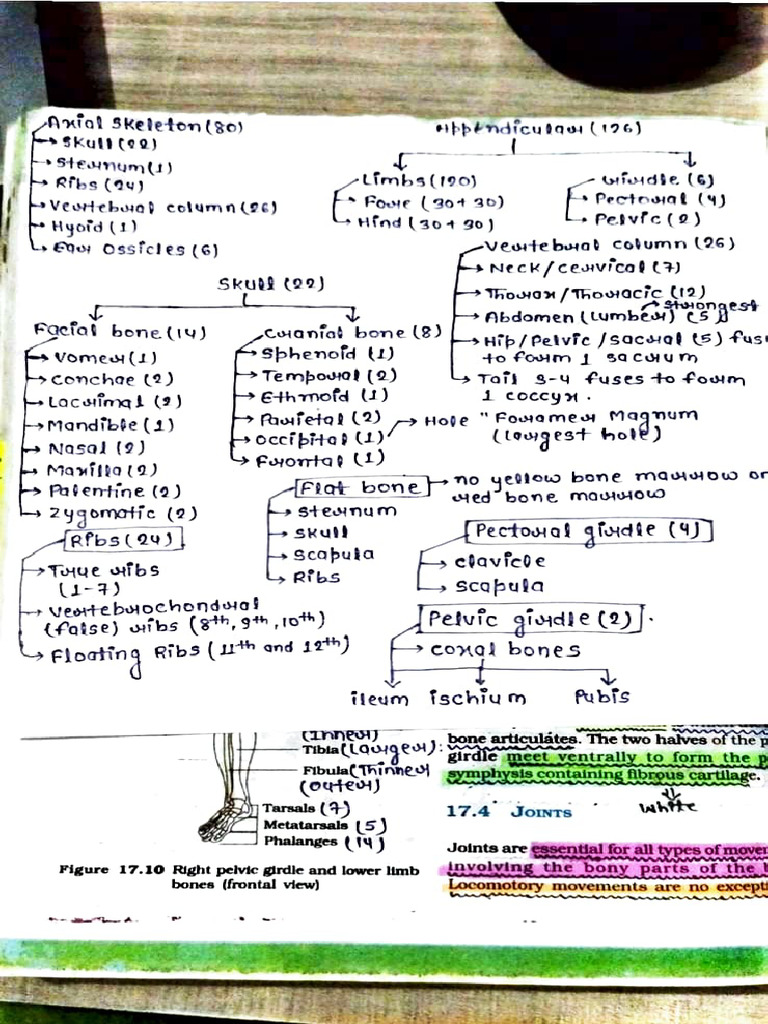 Axial Skeleton (80)
Skull (22)
Sternum (1)
Ribs (24)
Vertebral column (26)
Hyoid (1)
Ear Ossicles (6)
Appendicular (126)
Limbs (120)
Fore (30+30)
Hind (30+30)
Girdle (6)
Pectoral (4)
Pelvic (2)
Skull (22)
Facial bone (14)
Vomer (1)
Conchae (2)
Lacrimal (2)
Mandible (1)
Nasal (2)
Maxilla (2)
Palentine (2)
Zygomatic (2)
Cranial bone (8)
Sphenoid (1)
Temporal (2)
Ethmoid (1)
Parietal (2)
Occipital (1)
Frontal (1)
Hole " Foramer Magnum
(largest hole)
Vertebral column (26)
Neck/cervical (7)
Thorax/Thoracic (12)
Abdomen (lumber) (5)
strongest
Hip/Pelvic/sacral (5) fus
to form 1 sacrum
Tail 3-4 fuses to form
1 coccyx.
Flat bone
no yellow bone marrow or
red bone marrow
Sternum
Skull
Scapula
Ribs
Ribs (24)
True ribs
(1-7)
Vertebrochondral
(false) ribs (8th, 9th, 10th)
Floating Ribs (11th and 12th)
Pectoral girdle (4)
clavicle
scapula
Pelvic girdle (2).
coxal bones
ileum ischium Pubis
(Inner)
Tibia (Larger):
Fibula (Thinner)
(outer)
Tarsals (7)
Metatarsals (5)
Phalanges (14)
Figure 17.10 Right pelvic girdle and lower limb
bones (frontal view)
bone articulates. The two halves of the p
girdle meet ventrally to form the p
symphysis containing fibrous cartilage.
White
17.4 JOINTS
Joints are essential for all types of movem
involving the bony parts of the b
Locomotory movements are no excepti